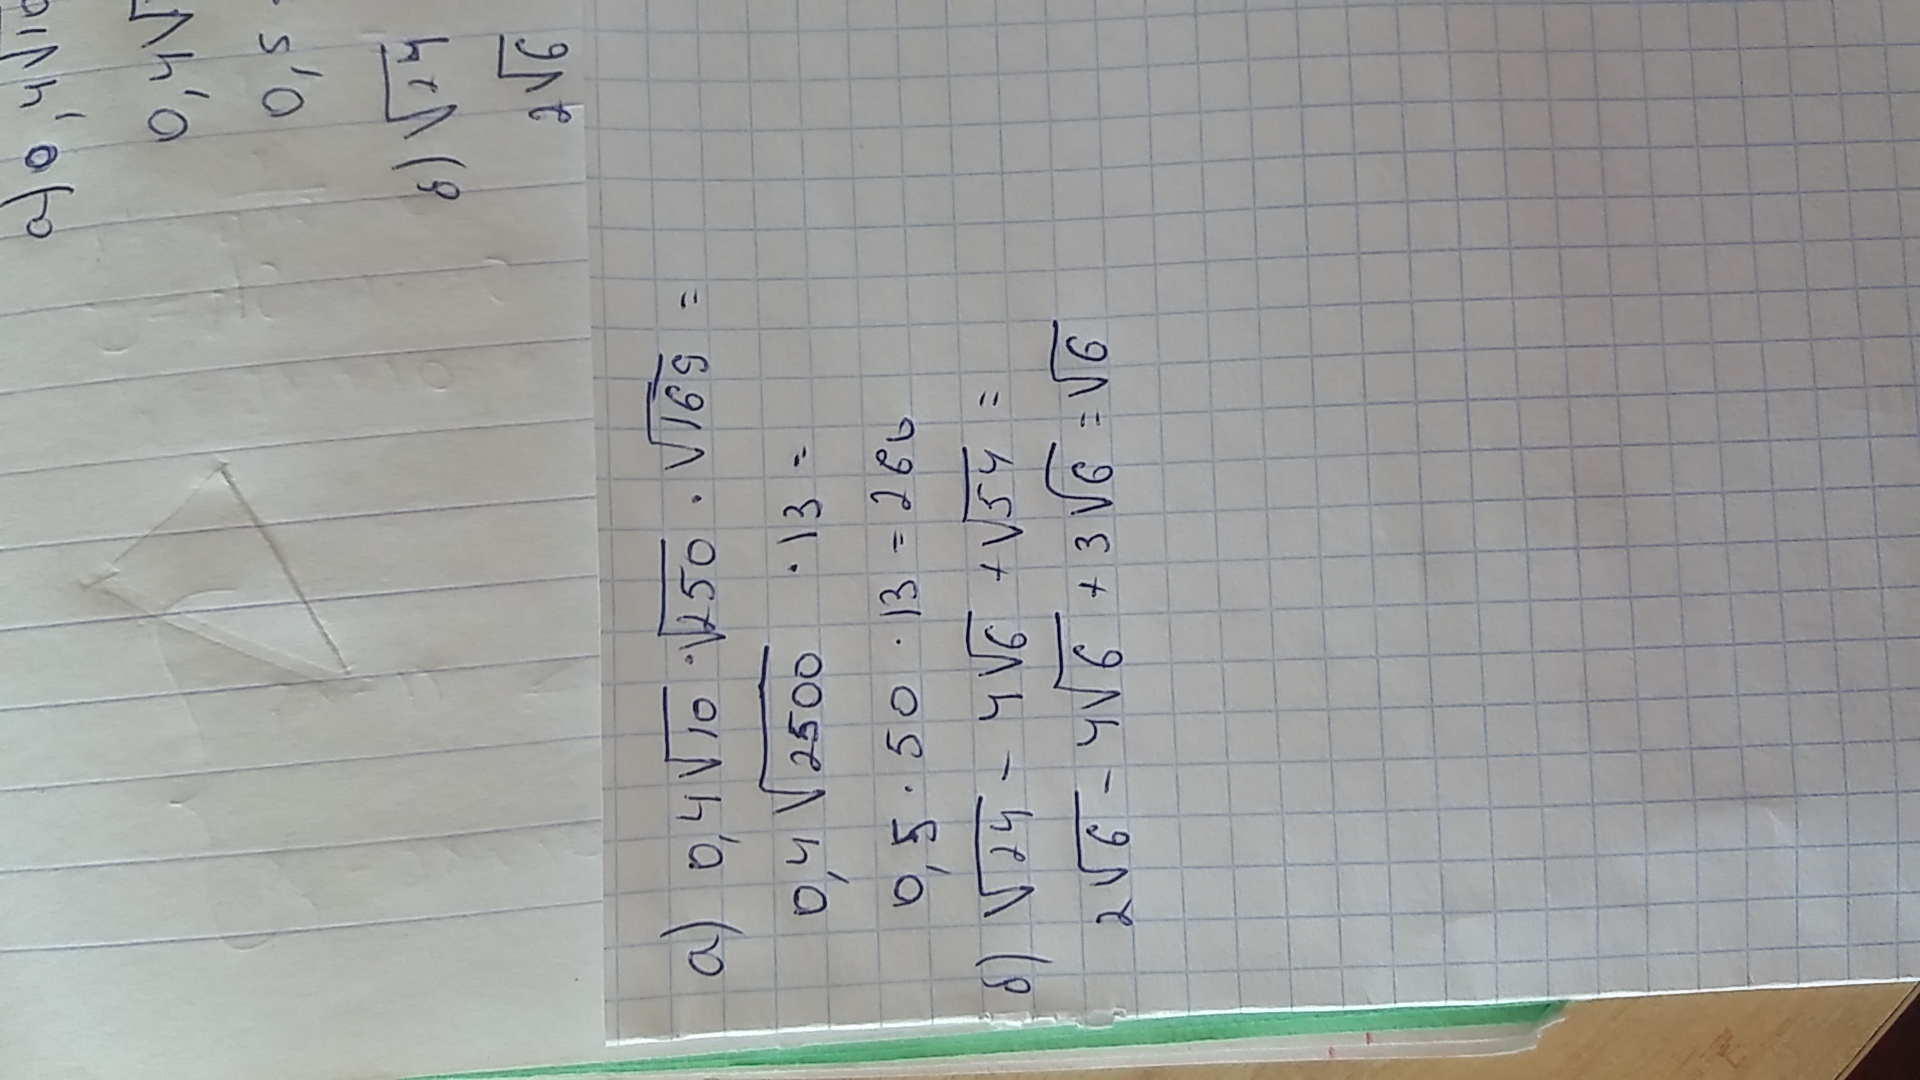 а) 0,4√10
0,4√
0,5
б) √24
2√6
а) 0,4√10 · √250 · √169 =
0,4√2500 · 13 =
0,5 · 50 · 13 = 260
б) √24 - 4√6 + √54 =
2√6 - 4√6 + 3√6 = √6